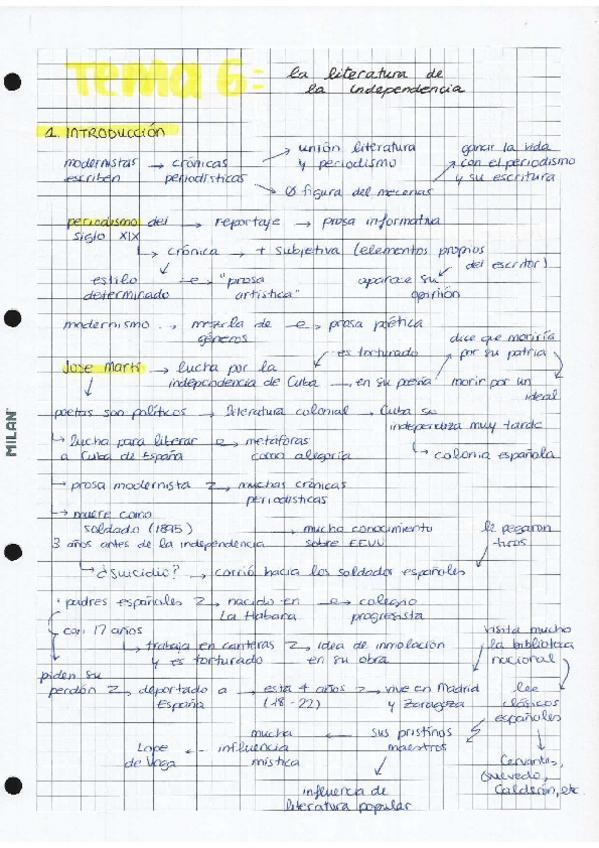 Tema 6: la literatura de
la independencia
1. INTRODUCCIÓN
modernistas → crónicas → unión literatura ganar la vida
escriben periodísticas y periodismo → con el periodismo
→ Ø figura del mecenas y su escritura
periodismo del → reportaje → prosa informativa
siglo XIX
↳ crónica → + subjetiva (elementos propios
del escritor)
estilo → "prosa aparece su
determinado artística" opinión
modernismo → mezcla de → prosa poética
géneros
es torturado dice que moriría
José Martí → lucha por la por su patria
independencia de Cuba → en su poesía morir por un
ideal
poetas son políticos → literatura colonial → Cuba su
independiza muy tarde
↳ lucha para liberar → metáforas
a Cuba de España como alegoría ↳ colonia española
→ prosa modernista → muchas crónicas
periodísticas
→ muere como
soldado (1895) → mucho conocimiento le pegaron
3 años antes de la independencia sobre EEUU tiros
↳ ¿suicidio? → corrió hacia los soldados españoles
· padres españoles → nacido en → colegio
La Habana progresista
con 17 años visita mucho
↳ trabaja en canteras → idea de inmolación la biblioteca
y es torturado en su obra nacional
piden su
perdón → deportado a → está 4 años → vive en Madrid lee
España (18-22) y Zaragoza clásicos
españoles
mucha ← sus pristinos
Lope ← influencia maestros
de Vega mística Cervantes,
Quevedo,
influencia de Calderón, etc
literatura popular
MILAN